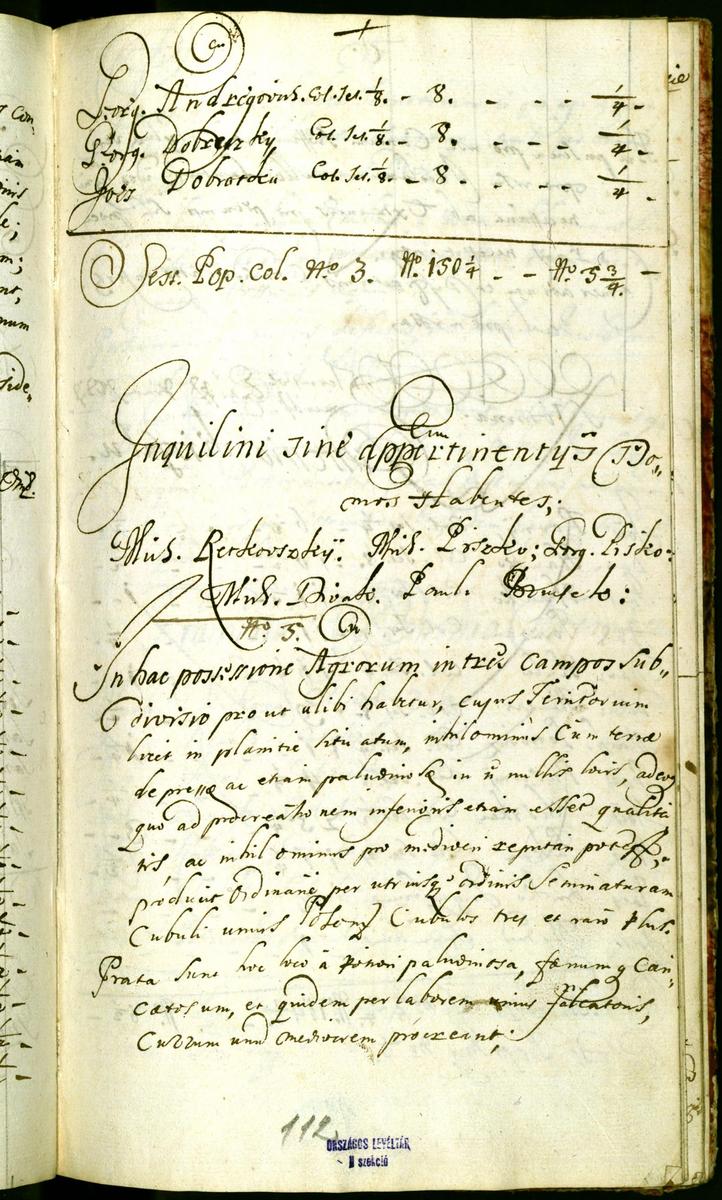 Georg. Andregovics. Col. Ses. 1/8. - 8. - - - 1/4 -
Georg. Dobretzky Col. Ses. 1/8. - 8. - - - 1/4 -
Joes Dobrotka Col. Ses. 1/8. - 8 - - - 1/4 -
Sess. Pop. Col. No. 3. No. 150 1/4 - - No. 5 3/4. -
Inquilini sine appertinentijs Do„
mos Habentes;
Mich. Reckovszkÿ. Mich. Piszko; Georg. Pisko:
Mich. Divako. Pauli
No. 5.
In hac possessione Agrorum in tres Campos sub„
divisio prout alibi habetur, cujus Territorium
licet in planitie situatum, nihilominus cum terræ
depressæ ac etiam paludinosæ in nullis locis, adeoq
quo ad procreationem inferioris etiam esset qualita
tis, ac nihilominus pro mediocri reputari potest,
producit ordinarie per utriusq ordinis Seminaturam
Cubuli unius Poson Cubulos tres et raro plus.
Prata sunt hoc loco à potiori paludinosa, fænumq Cari„
catosum, et quidem per laborem unius falcatoris,
Currum unum mediocrem procreant;
112.
ORSZÁGOS LEVÉLTÁR
II szekció